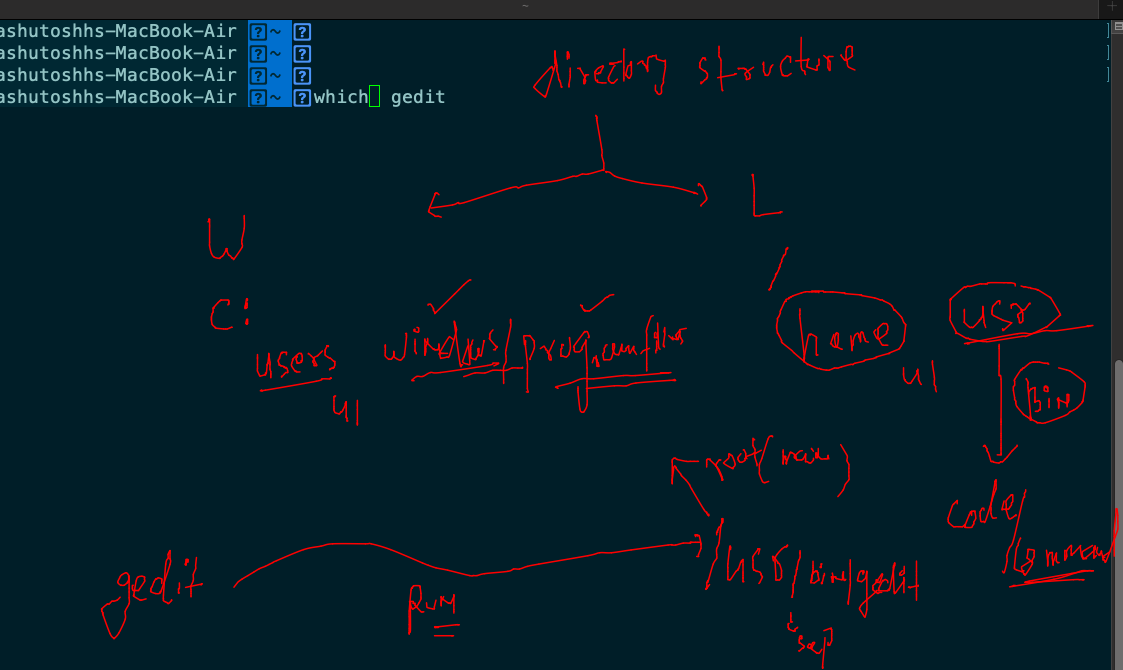 ashutoshhs-MacBook-Air ? ~ ?
ashutoshhs-MacBook-Air ? ~ ?
ashutoshhs-MacBook-Air ? ~ ?
ashutoshhs-MacBook-Air ? ~ ? which gedit
directory structure
W L
C: /
users windows/program files home usr
u1 u1 bin
root(main)
code/
gedit Run /usr/bin/gedit command
sep